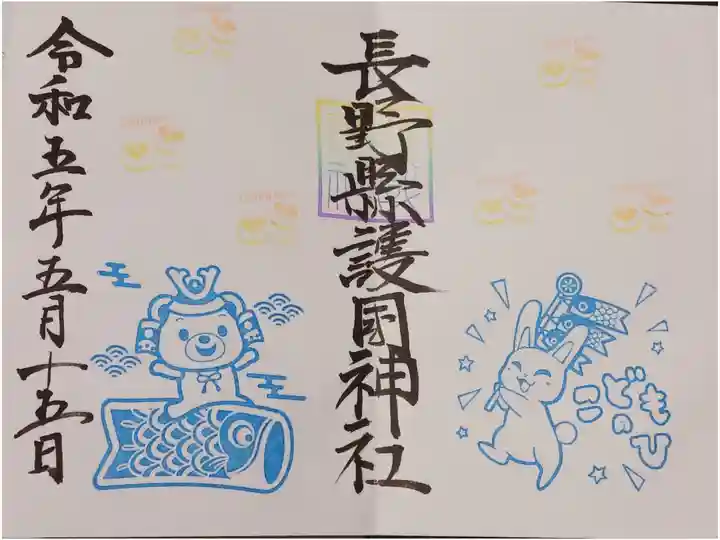 長野縣護国神社
こどものひ
令和五年五月十五日